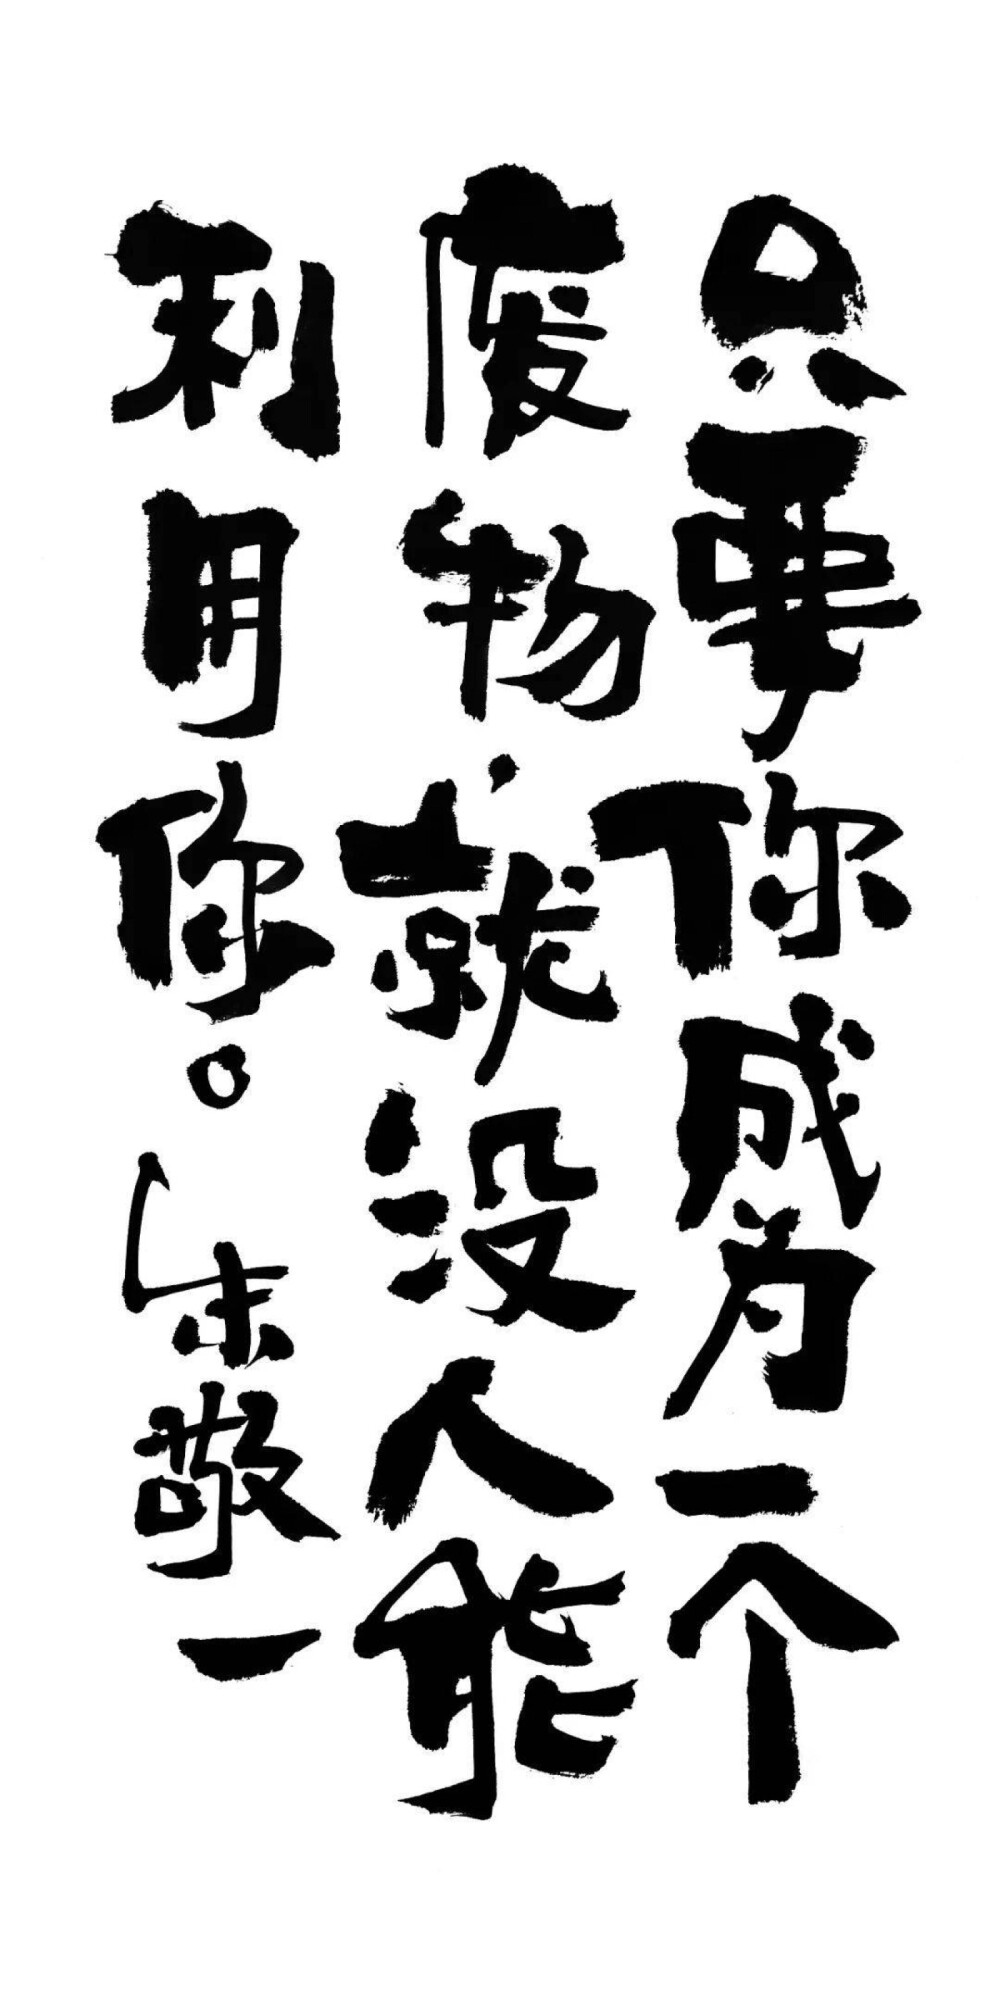 只要你成为一个
废物·就没人能
利用你。朱敬一